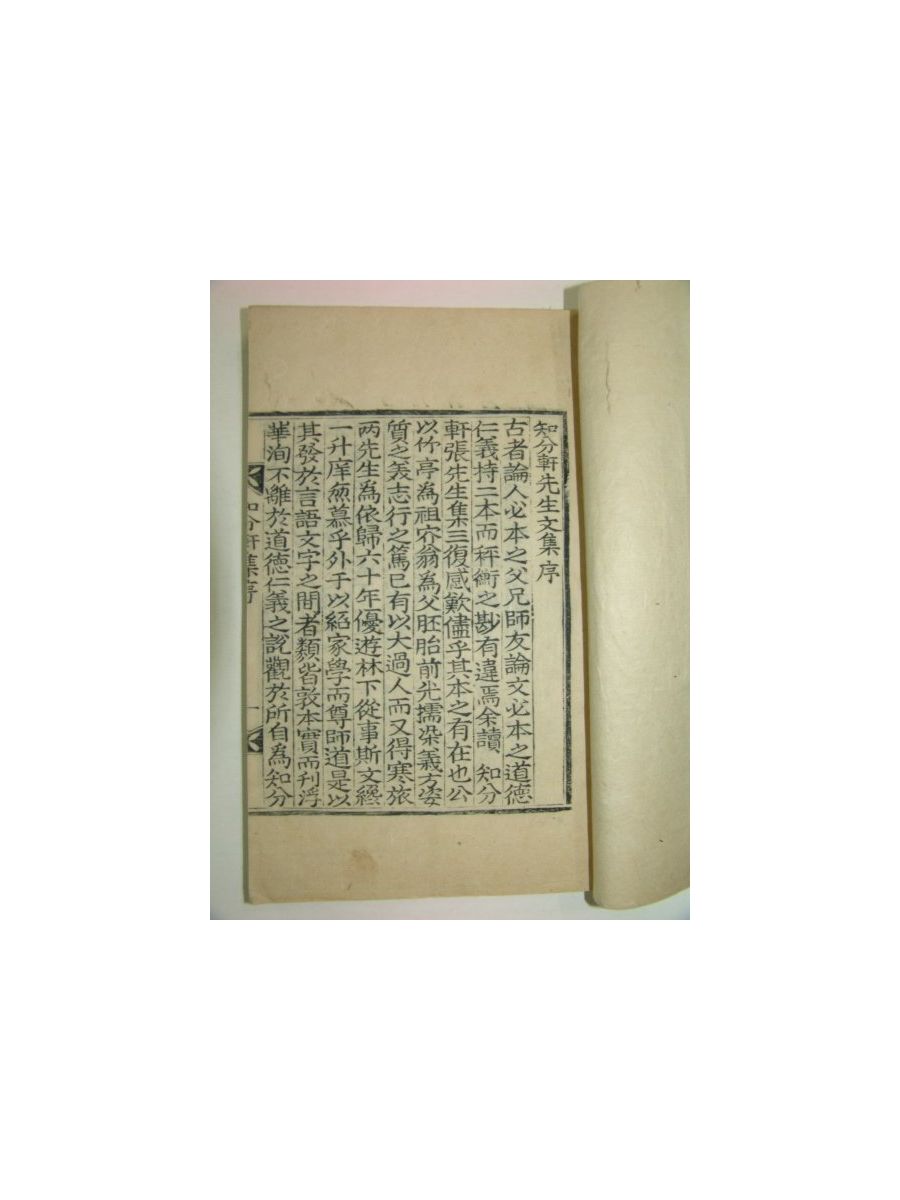 知分軒先生文集序
古者論人必本之父兄師友論文必本之道德
仁義持二本而秤衡之尠有違焉余讀 知分
軒張先生集三復感歎儘乎其本之有在也公
以竹亭為祖穷翁為父胚胎前光擩染義方姿
質之美志行之篤已有以大過人而又得寒旅
两先生為依歸六十年優遊林下從事斯文纔
一升庠無慕乎外于以紹家學而尊師道是以
其發於言語文字之間者類皆敦本實而刊浮
華洵不離於道德仁義之說觀於所自為知分
知分軒集序
一